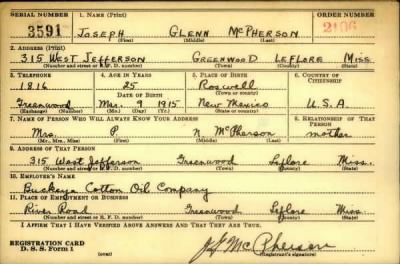 SERIAL NUMBER 1. NAME (Print) ORDER NUMBER
3591 JOSEPH GLENN MCPHERSON 2106
(First) (Middle) (Last)
2. ADDRESS (Print)
315 WEST JEFFERSON GREENWOOD LEFLORE MISS
(Number and street or R. F. D. number) (Town) (County) (State)
3. TELEPHONE 4. AGE IN YEARS 5. PLACE OF BIRTH 6. COUNTRY OF CITIZENSHIP
1816 25 Roswell
DATE OF BIRTH (Town or county)
Greenwood Mar. 9 1915 New Mexico U.S.A.
(Exchange) (Number) (Mo.) (Day) (Yr.) (State or country)
7. NAME OF PERSON WHO WILL ALWAYS KNOW YOUR ADDRESS 8. RELATIONSHIP OF THAT PERSON
Mrs. P. N. McPherson mother
(Mr., Mrs., Miss) (First) (Middle) (Last)
9. ADDRESS OF THAT PERSON
315 West Jefferson Greenwood Leflore Miss.
(Number and street or R. F. D. number) (Town) (County) (State)
10. EMPLOYER'S NAME
Buckeye Cotton Oil Company
11. PLACE OF EMPLOYMENT OR BUSINESS
River Road Greenwood Leflore Miss.
(Number and street or R. F. D. number) (Town) (County) (State)
I AFFIRM THAT I HAVE VERIFIED ABOVE ANSWERS AND THAT THEY ARE TRUE.
REGISTRATION CARD
D. S. S. Form 1 (over) J. G. McPherson
(Registrant's signature)